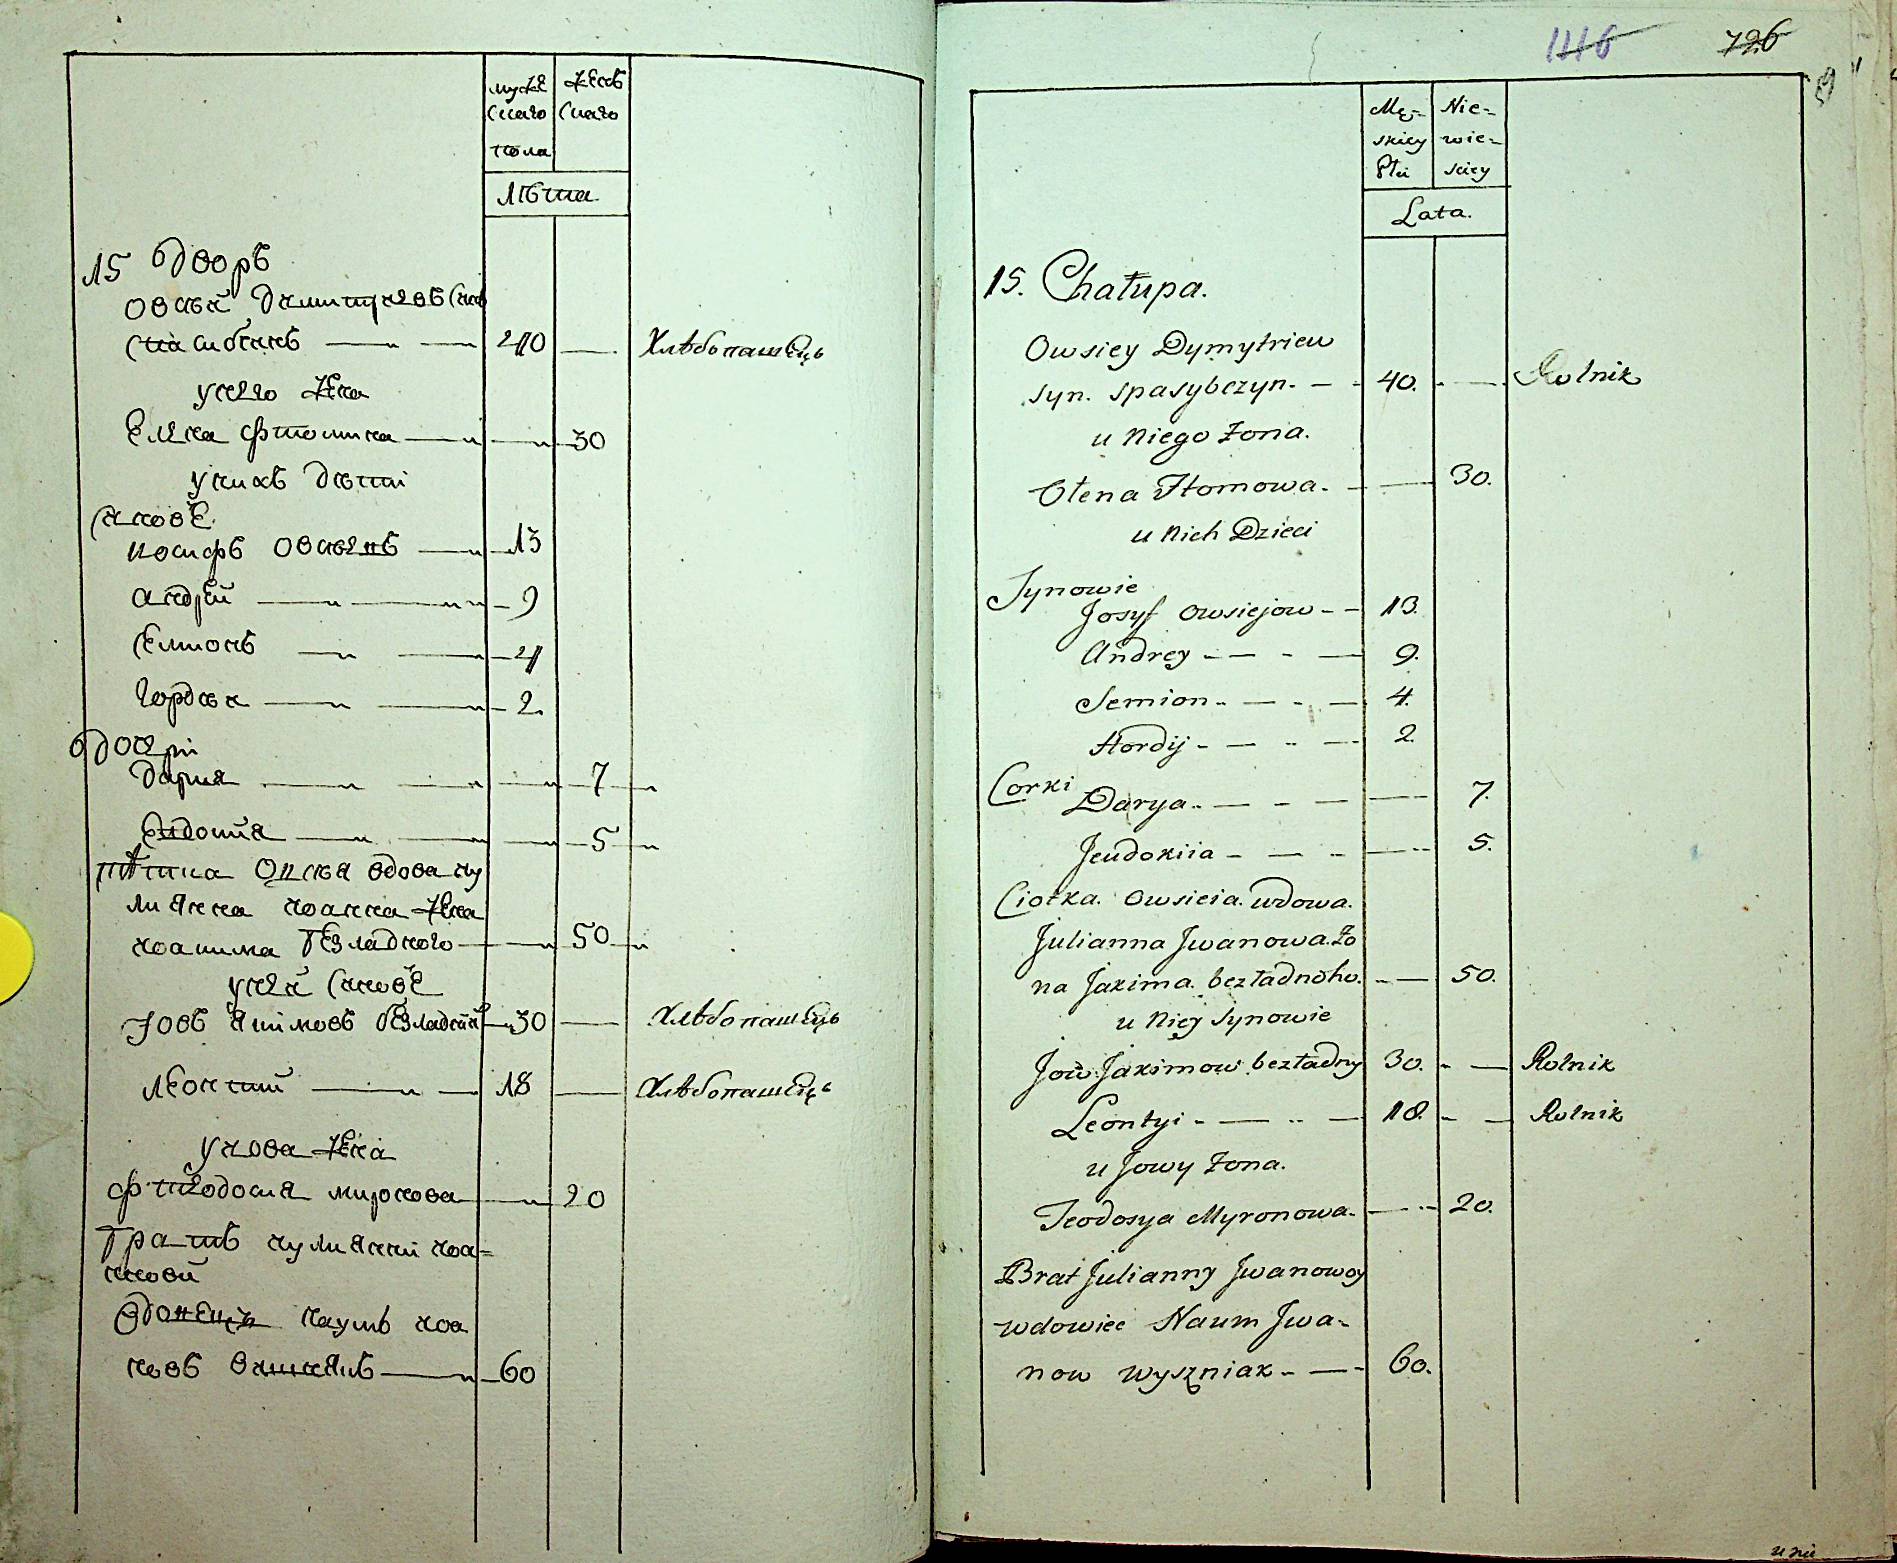 муже
ского
пола
женъ
ского
лѣта
15 дворъ
овсѣй димитриевъ сынъ
спасибчинъ 40 хлѣбопашецъ
у него жена
елена фтомина 30
у нихъ дѣти
сынове
иосифъ овсѣевъ 13
андрей 9
семионъ 4
гордѣи 2
дочери
дария 7
евдокия 5
тѣтка овсѣя вдова иу
лиянна иванна жена
иоакима безладного 50
у неи сынове
Іовъ якимовъ безладний 30 хлѣбопашецъ
леонтий 18 хлѣбопашецъ
у иова жена
фтеодосия миронова 20
братъ иулиянни ива=
нновой
вдовецъ наумъ ива
новъ вишнякъ 60
1116 726
Mę-
skiey
Płci
Nie-
wie-
sciey
Lata.
15. Chałupa.
Owsiey Dymytriew
syn. Spasybczyn. 40. Rolnik
u Niego Żona.
Olena Ftomowa. 30.
u Nich Dzieci
Synowie
Josyf Owsiejow 13.
Andrey 9.
Semion 4.
Hordij 2.
Corki
Darya 7.
Jeudokiia 5.
Ciotka. Owsieia. wdowa.
Julianna Jwanowa. Żo
na Jakima. bezładnoho. 50.
u Niey Synowie
Jow Jakimow bezładny 30. Rolnik
Leontyi 18. Rolnik
u Jowy Żona.
Teodosya Myronowa. 20.
Brat Julianny Jwanowoy
wdowiec Naum Jwa-
now Wyszniak 60.
u nii